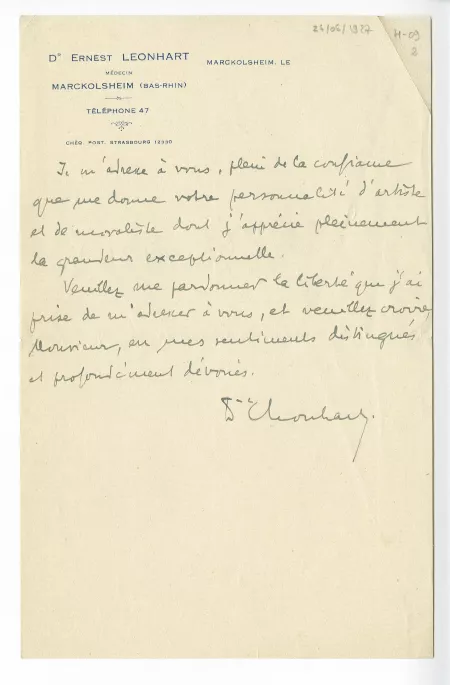 24/06/1927
H-09
2
Dr ERNEST LEONHART
MÉDECIN
MARCKOLSHEIM (BAS-RHIN)
TÉLÉPHONE 47
CHÈQ. POST. STRASBOURG 13330
MARCKOLSHEIM, LE
Je m'adresse à vous, plein de la confiance
que me donne votre personnalité d'artiste
et de moraliste dont j'apprécie pleinement
la grandeur exceptionnelle.
Veuillez me pardonner la liberté que j'ai
prise de m'adresser à vous, et veuillez croire,
Monsieur, en mes sentiments distingués
et profondément dévoués.
Dr Leonhart.